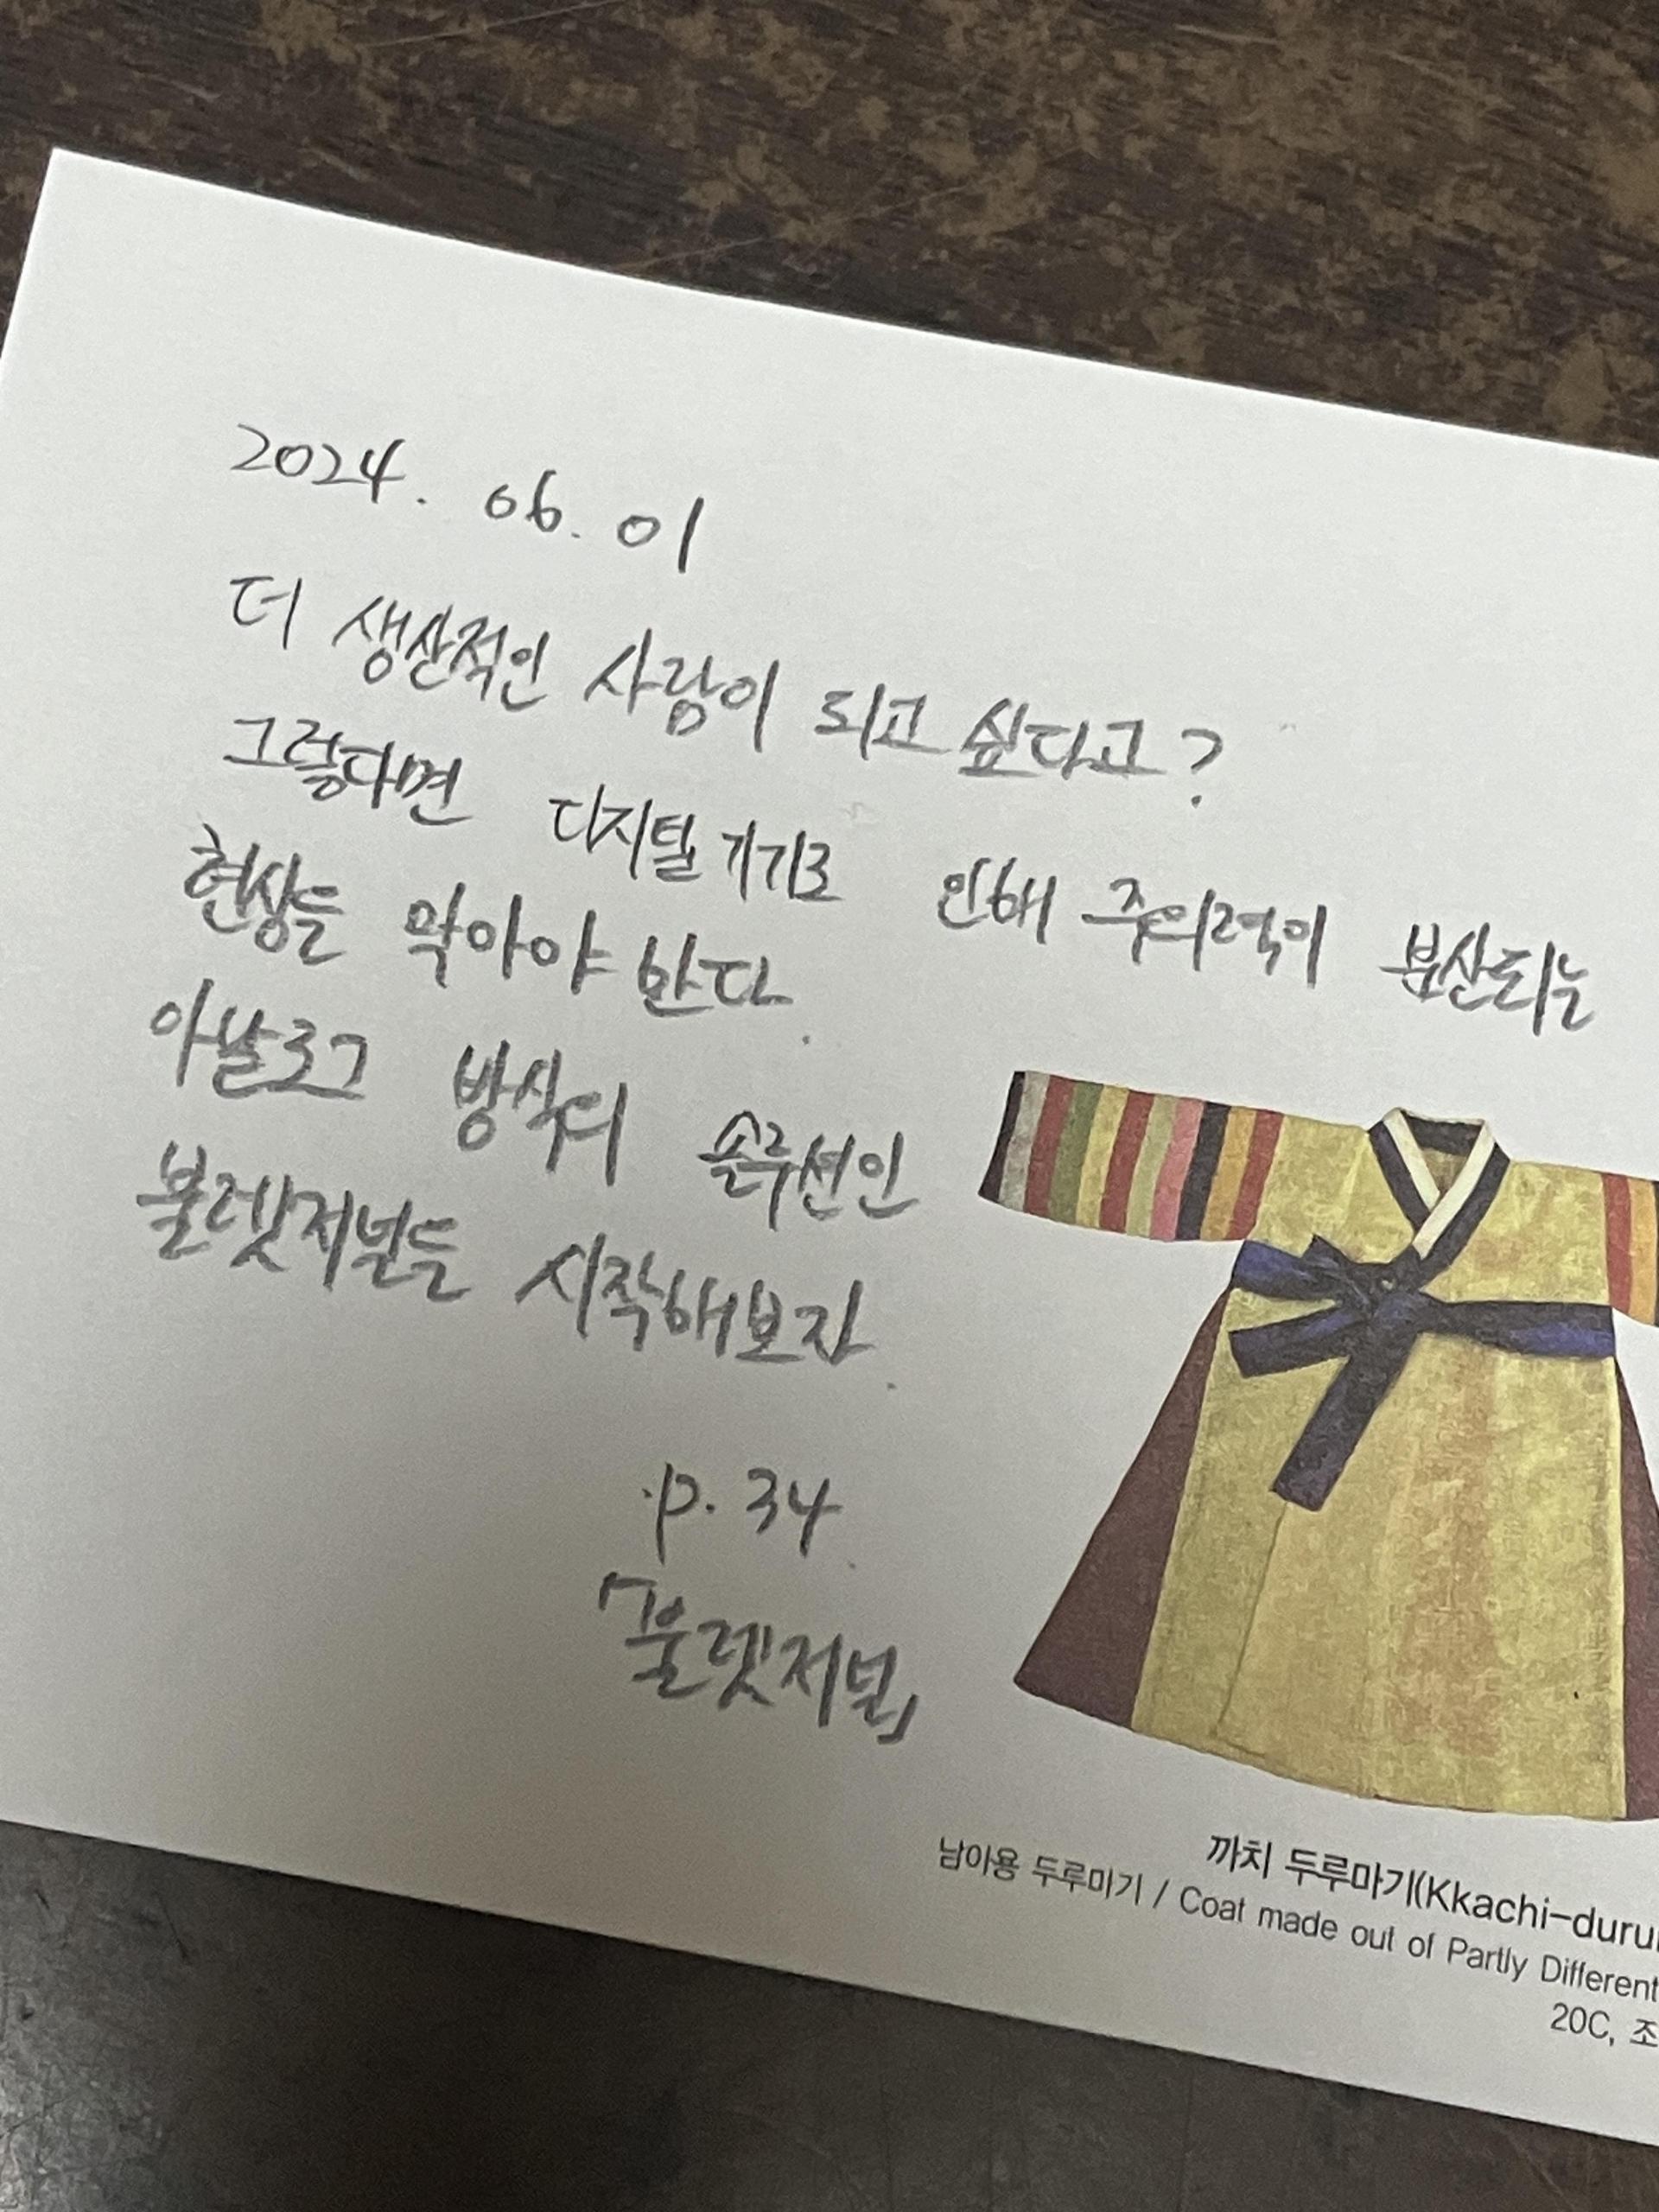 2024. 06. 01
더 생산적인 사람이 되고 싶다고?
그렇다면 디지털 기기로 인해 주의력이 분산되는
현상을 막아야 한다.
아날로그 방식의 솔루션인
불렛저널을 시작해보자.
p. 34.
「불렛저널」
까치 두루마기(Kkachi-duru
남아용 두루마기 / Coat made out of Partly Different
20C, 조